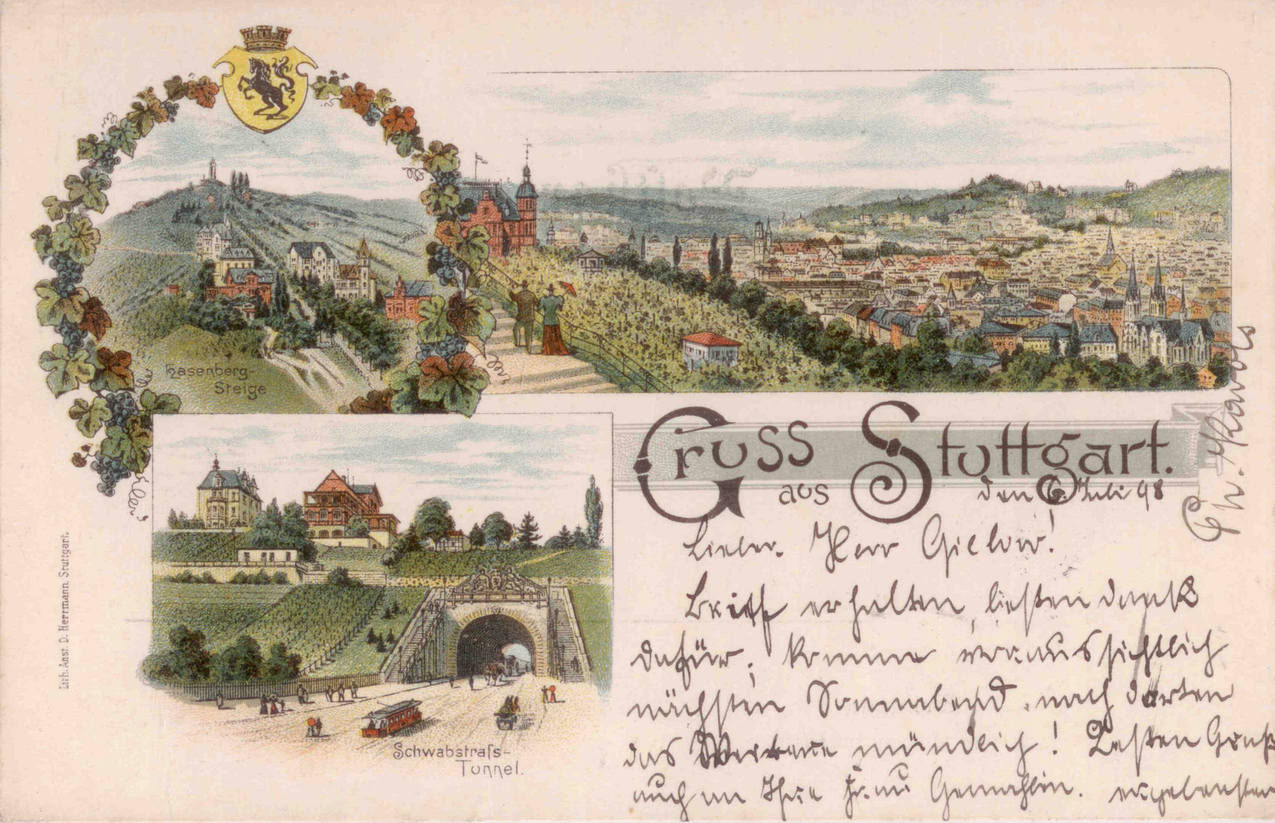 Hasenberg-
Steige
Gruss
aus Stuttgart.
den 6. Juli 98
Lieber Herr Gielow!
Brief erhalten, besten Dank
dafür; komme voraussichtlich
nächsten Sonnabend nach dorten
das Weitere mündlich! Besten Gruß
auch an Ihre Frau Gemahlin.
Schwabstrafs-
Tunnel.
Lith. Anst. D. Herrmann, Stuttgart.